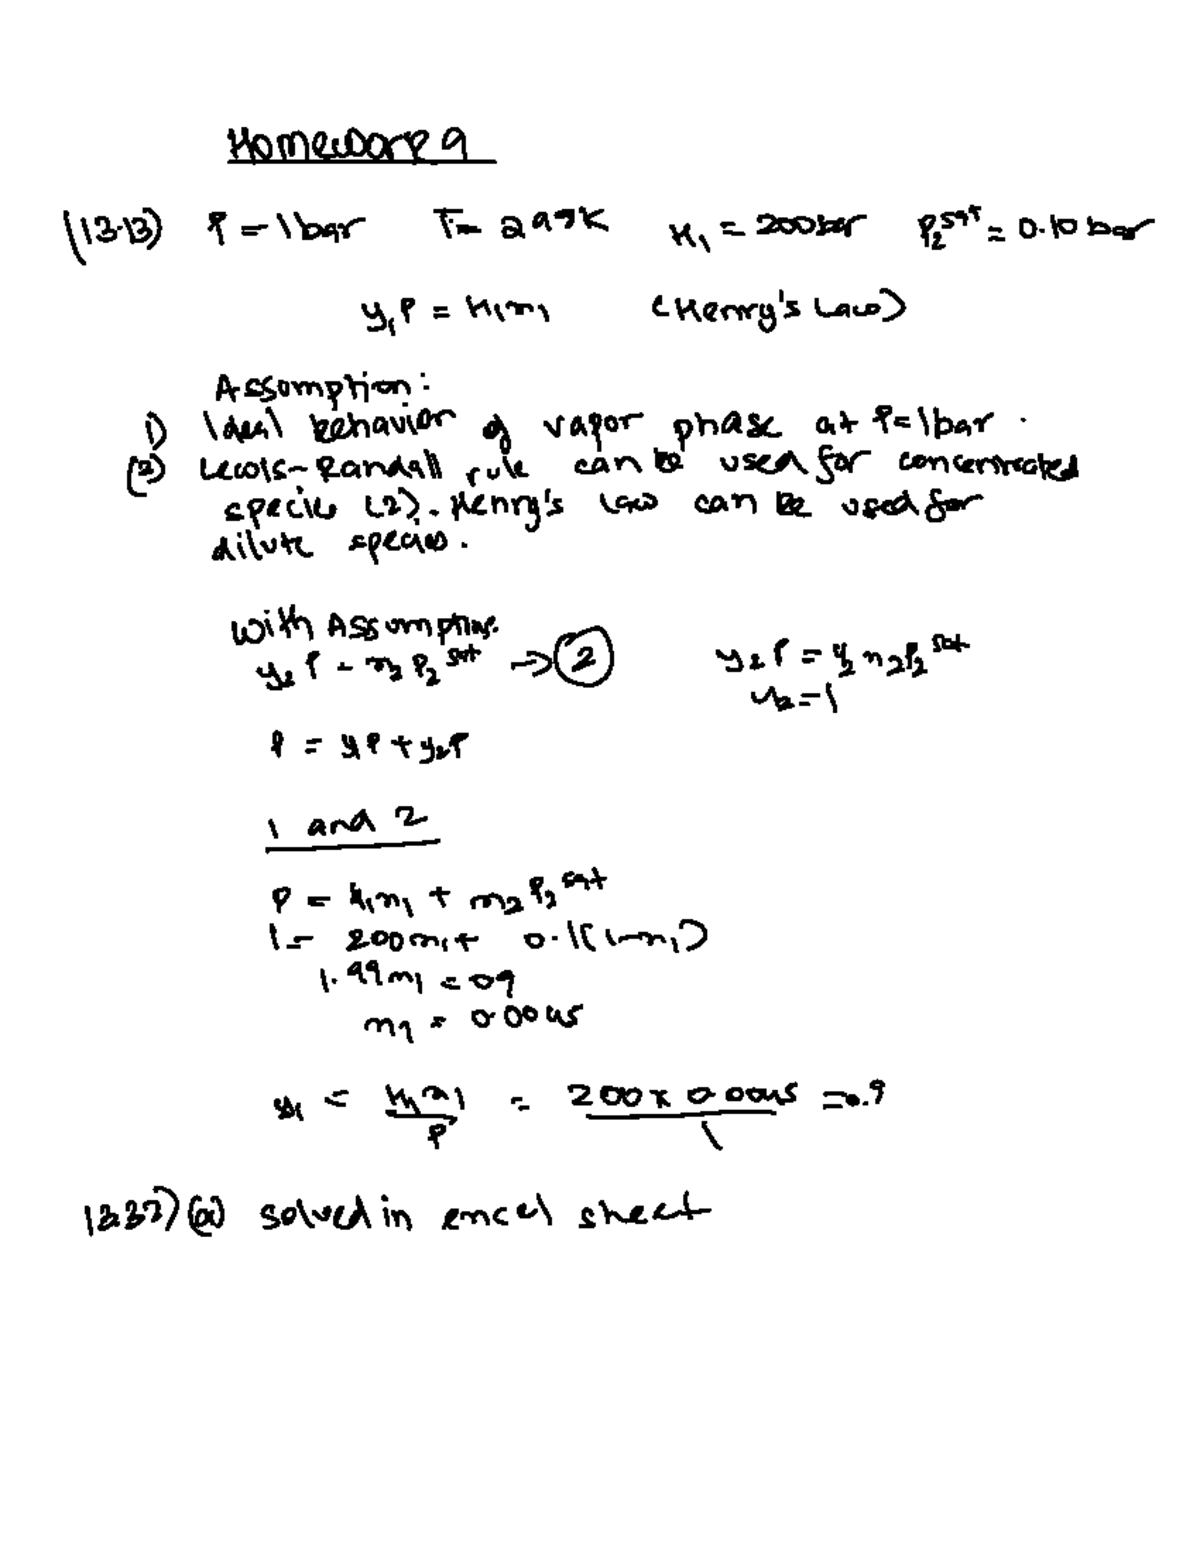 Homework 9
(13.13) P = 1 bar T = 298K H₁ = 200 bar P₂ˢᵃᵗ = 0.10 bar
y₁P = H₁x₁ (Henry's Law)
Assumption:
1) Ideal behavior of vapor phase at P=1bar.
(2) Lewis-Randall rule can be used for concentrated
specie (2). Henry's law can be used for
dilute species.
with Assumptions
y₂P = x₂P₂ˢᵃᵗ → 2 y₂P = γ₂x₂P₂ˢᵃᵗ
γ₂=1
P = y₁P + y₂P
1 and 2
P = H₁x₁ + x₂P₂ˢᵃᵗ
1 = 200x₁+ 0.1(1-x₁)
1.99x₁ = 0.9
x₁ = 0.0045
y₁ = H₁x₁/P = 200 x 0.0045/1 = 0.9
(a) solved in excel sheet